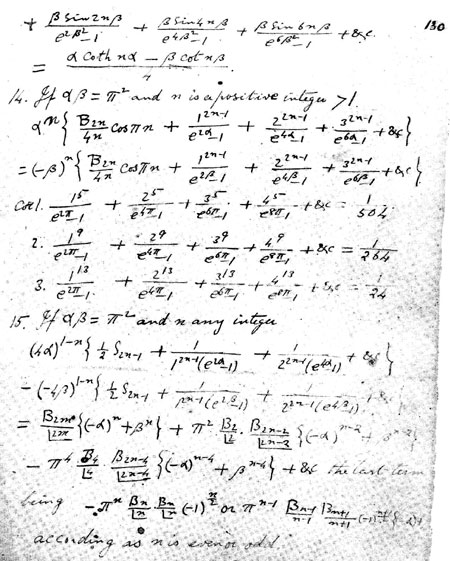 + β Sin 2nβ / (e^{2β²} - 1) + β Sin 4nβ / (e^{4β²} - 1) + β Sin 6nβ / (e^{6β²} - 1) + &c 130
= (α Coth nα - β Cot nβ) / 4
14. If αβ = π² and n is a positive integer >1.
α^n { B_{2n}/4n cos πn + 1^{2n-1}/(e^{2α}-1) + 2^{2n-1}/(e^{4α}-1) + 3^{2n-1}/(e^{6α}-1) + &c }
= (-β)^n { B_{2n}/4n cos πn + 1^{2n-1}/(e^{2β}-1) + 2^{2n-1}/(e^{4β}-1) + 3^{2n-1}/(e^{6β}-1) + &c }
Cor 1. 1^5/(e^{2π}-1) + 2^5/(e^{4π}-1) + 3^5/(e^{6π}-1) + 4^5/(e^{8π}-1) + &c = 1/504
2. 1^9/(e^{2π}-1) + 2^9/(e^{4π}-1) + 3^9/(e^{6π}-1) + 4^9/(e^{8π}-1) + &c = 1/264
3. 1^{13}/(e^{2π}-1) + 2^{13}/(e^{4π}-1) + 3^{13}/(e^{6π}-1) + 4^{13}/(e^{8π}-1) + &c = 1/24
15. If αβ = π² and n any integer
(4α)^{1-n} { ½ S_{2n-1} + 1/(1^{2n-1}(e^{2α}-1)) + 1/(2^{2n-1}(e^{4α}-1)) + &c }
- (-4β)^{1-n} { ½ S_{2n-1} + 1/(1^{2n-1}(e^{2β}-1)) + 1/(2^{2n-1}(e^{4β}-1)) + &c }
= B_{2n}/|2n {(-α)^n + β^n} + π² B_2/|2 · B_{2n-2}/|2n-2 {(-α)^{n-2} + β^{n-2}}
- π^4 B_4/|4 · B_{2n-4}/|2n-4 {(-α)^{n-4} + β^{n-4}} + &c the last term
being - π^n B_n/|n B_n/|n (-1)^{n/2} or π^{n-1} B_{n-1}/|n-1 B_{n+1}/|n+1
according as n is even or odd.